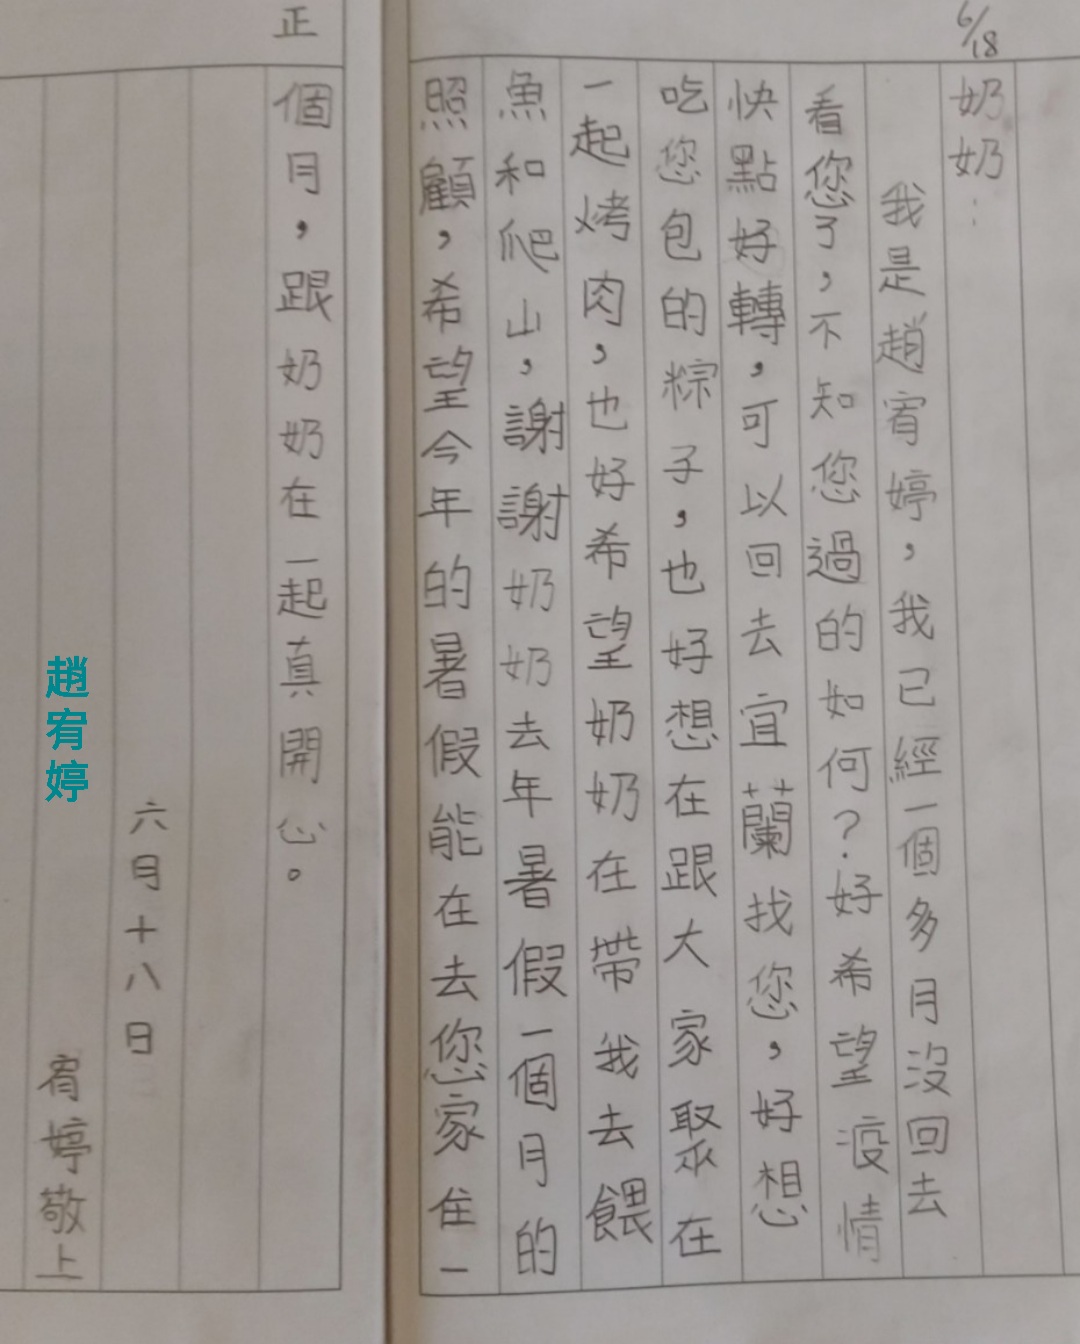 6/18
奶奶：
我是趙宥婷，我已經一個多月沒回去
看您了，不知您過的如何？好希望疫情
快點好轉，可以回去宜蘭找您，好想
吃您包的粽子，也好想在跟大家聚在
一起烤肉，也好希望奶奶在帶我去餵
魚和爬山，謝謝奶奶去年暑假一個月的
照顧，希望今年的暑假能在去您家住一
正
個月，跟奶奶在一起真開心。
六月十八日
宥婷敬上
趙宥婷